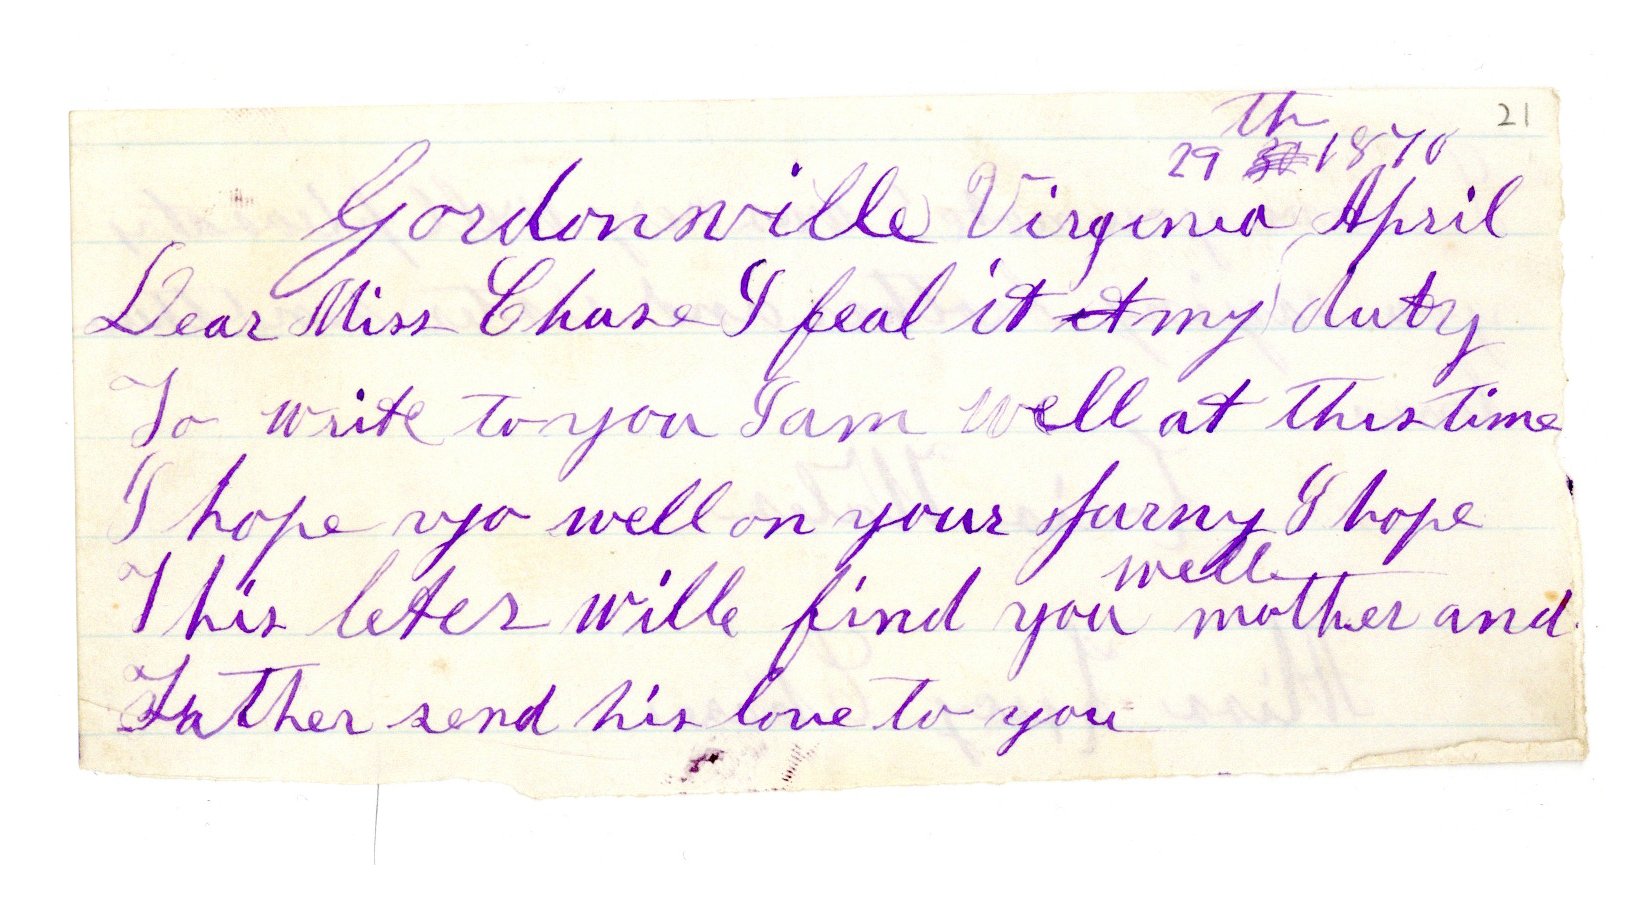 21
th
29 1870
Gordonsville Virginia April
Dear Miss Chase I feal it my duty
To write to you I am well at this time
I hope you well on your jurny I hope
well
This leter wille find you mother and
Father send his love to you